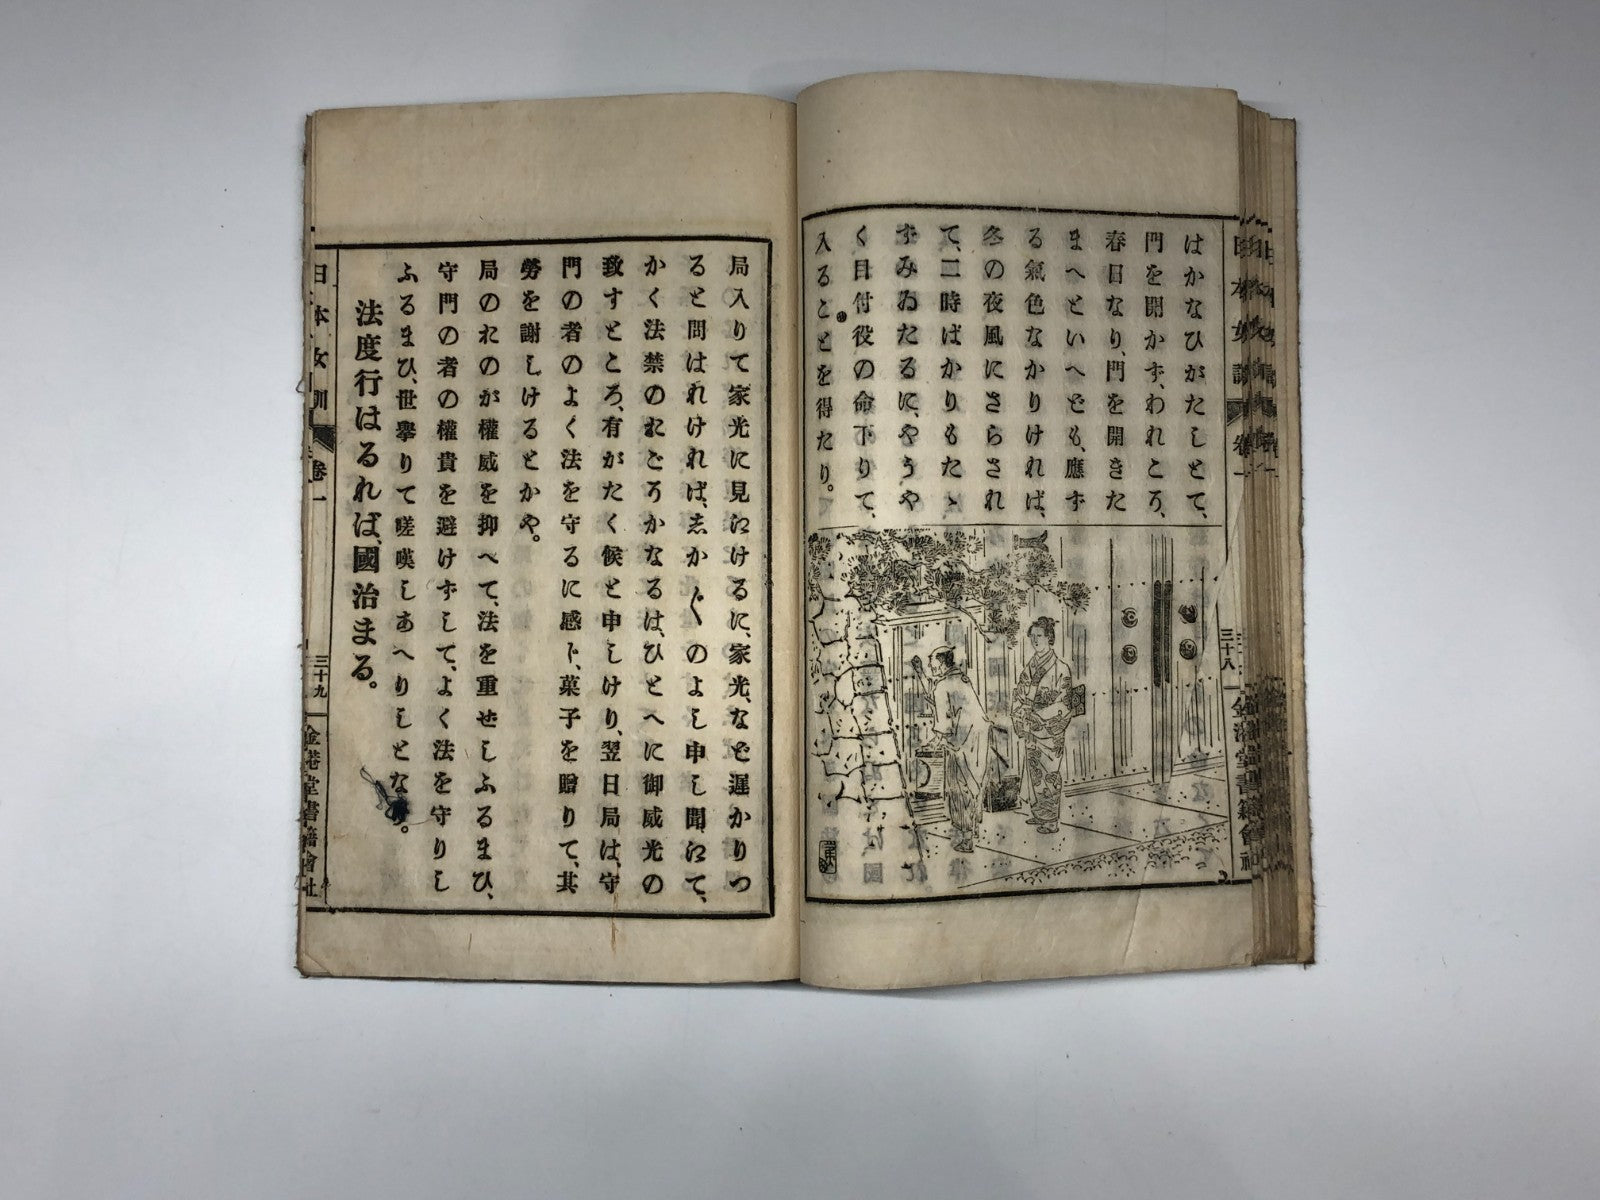 はかなひがたしとて、
門を開かず、われこそ、
春日なり、門を開きた
まへといへども、應ず
る氣色なかりければ、
冬の夜風にさらされ
て、二時ばかりもたゝ
ずみゐたるに、やうや
く目付役の命下りて、
入ることを得たり。
三十八
局入りて家光に見えけるに、家光、など遲かりつ
ると問はれければ、志か〴〵のよし申し聞えて、
かく法禁のおごそかなるは、ひとへに御威光の
致すところ、有がたく候と申しけり、翌日局は、守
門の者のよく法を守るに感じ、菓子を贈りて、其
勞を謝しけるとかや。
局のおのが權威を抑へて、法を重せしふるまひ、
守門の者の權貴を避けずして、よく法を守りし
ふるまひ、世擧りて嗟嘆しあへりしとなり。
法度行はるれば、國治まる。
日本女訓
卷一
三十九
金港堂書籍會社